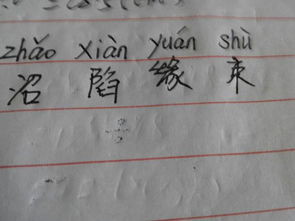 zhǎo xiàn yuán shù
沼 陷 缘 束